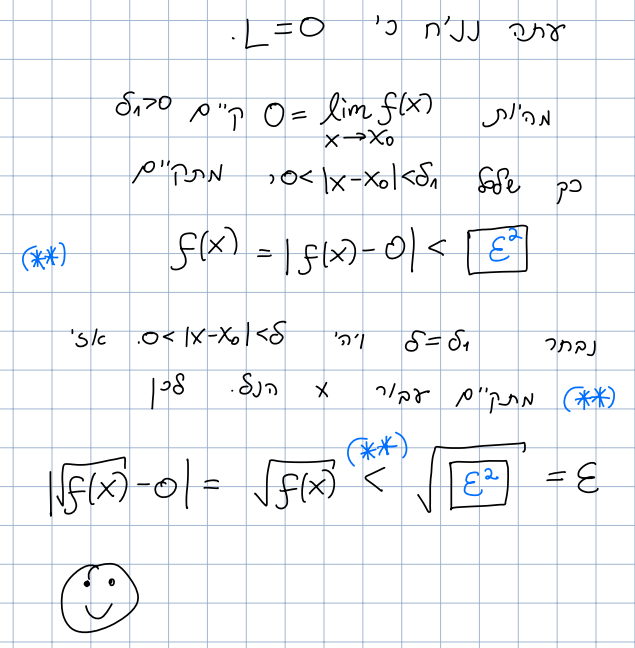 עתה נניח כי L=0.
מהיות 0 = lim_{x→x₀} f(x) קיים δ₁>0
כך שלכל 0<|x-x₀|<δ₁, מתקיים
f(x) = |f(x)-0| < ε² (**)
נבחר δ=δ₁ ויהי 0<|x-x₀|<δ. אזי
(**) מתקיים עבור x הנ"ל. לכן
|√f(x) - 0| = √f(x) <^{(**)} √ε² = ε